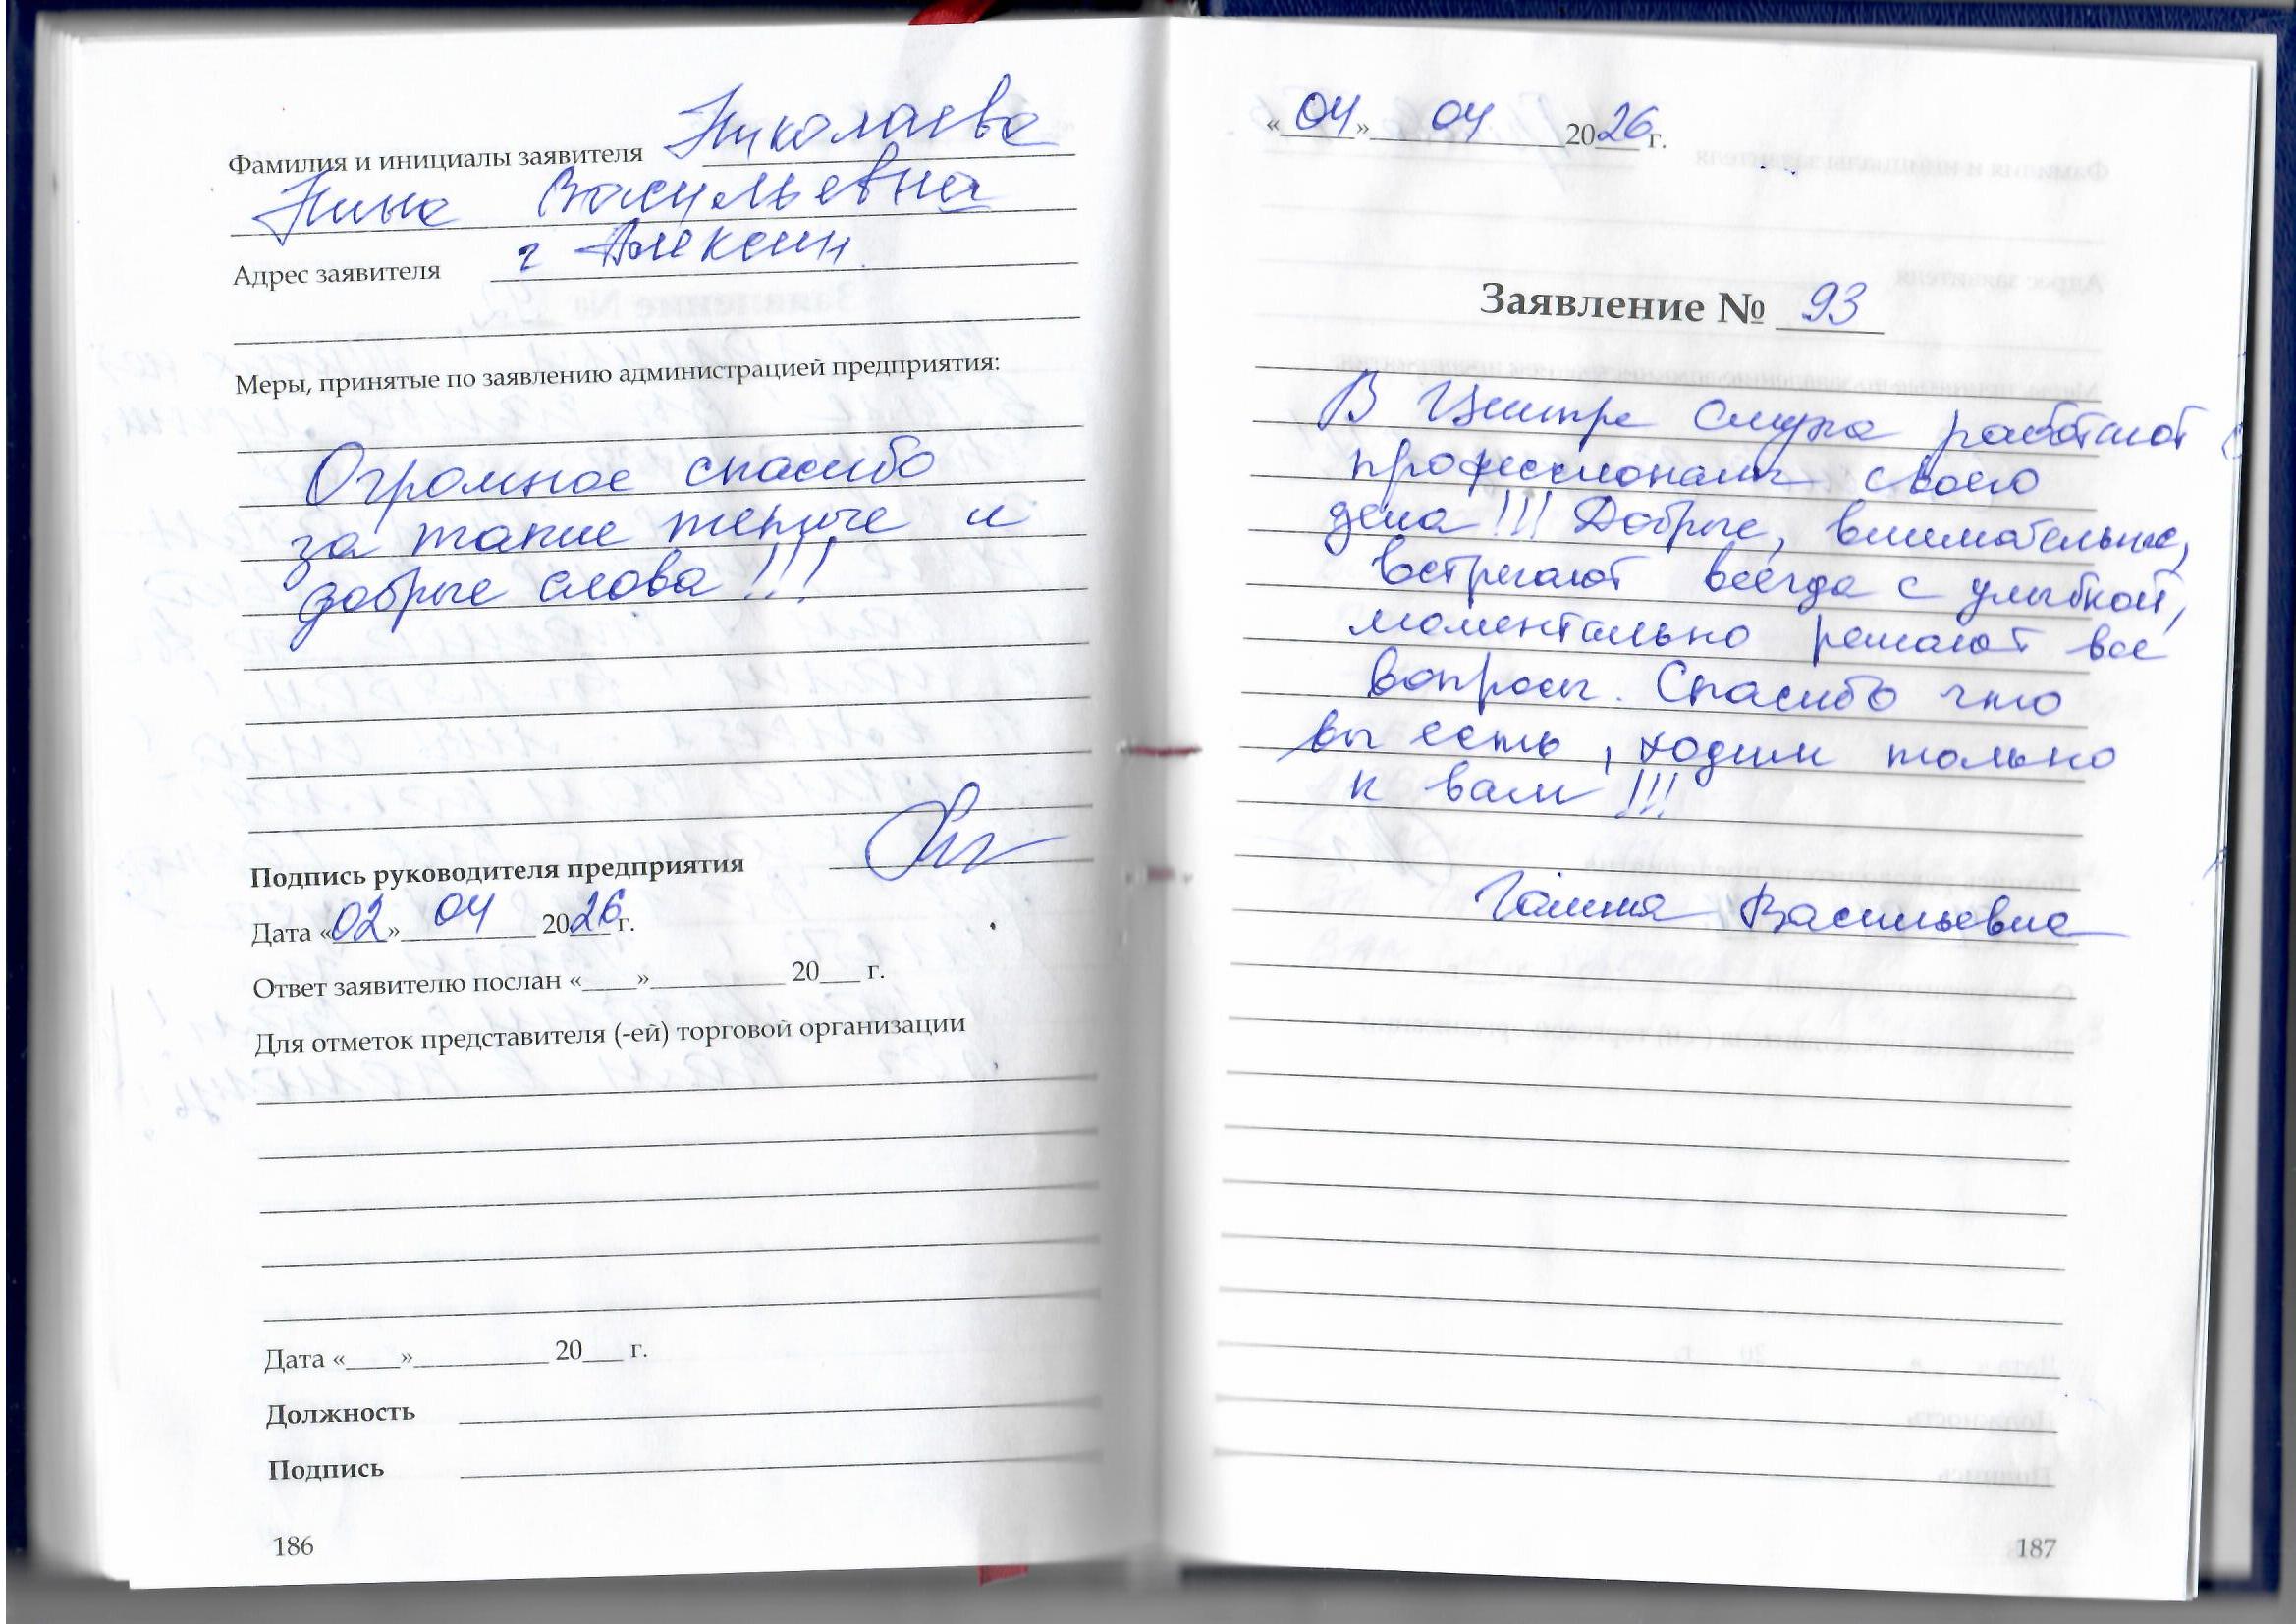 Фамилия и инициалы заявителя Николаева
Нина Васильевна
Адрес заявителя г Алексин
Меры, принятые по заявлению администрацией предприятия:
Огромное спасибо
за такие теплые и
добрые слова!!!
Подпись руководителя предприятия
Дата «02» 04 2026 г.
Ответ заявителю послан «____»__________ 20___ г.
Для отметок представителя (-ей) торговой организации
Дата «____»__________ 20___ г.
Должность
Подпись
186
«04» 04 2026 г.
Заявление № 93
В Центре слуха работают
профессионалы своего
дела!!! Добрые, внимательные,
встречают всегда с улыбкой,
моментально решают все
вопросы. Спасибо что
вы есть, ходим только
к вам!!!
Галина Васильевна
187